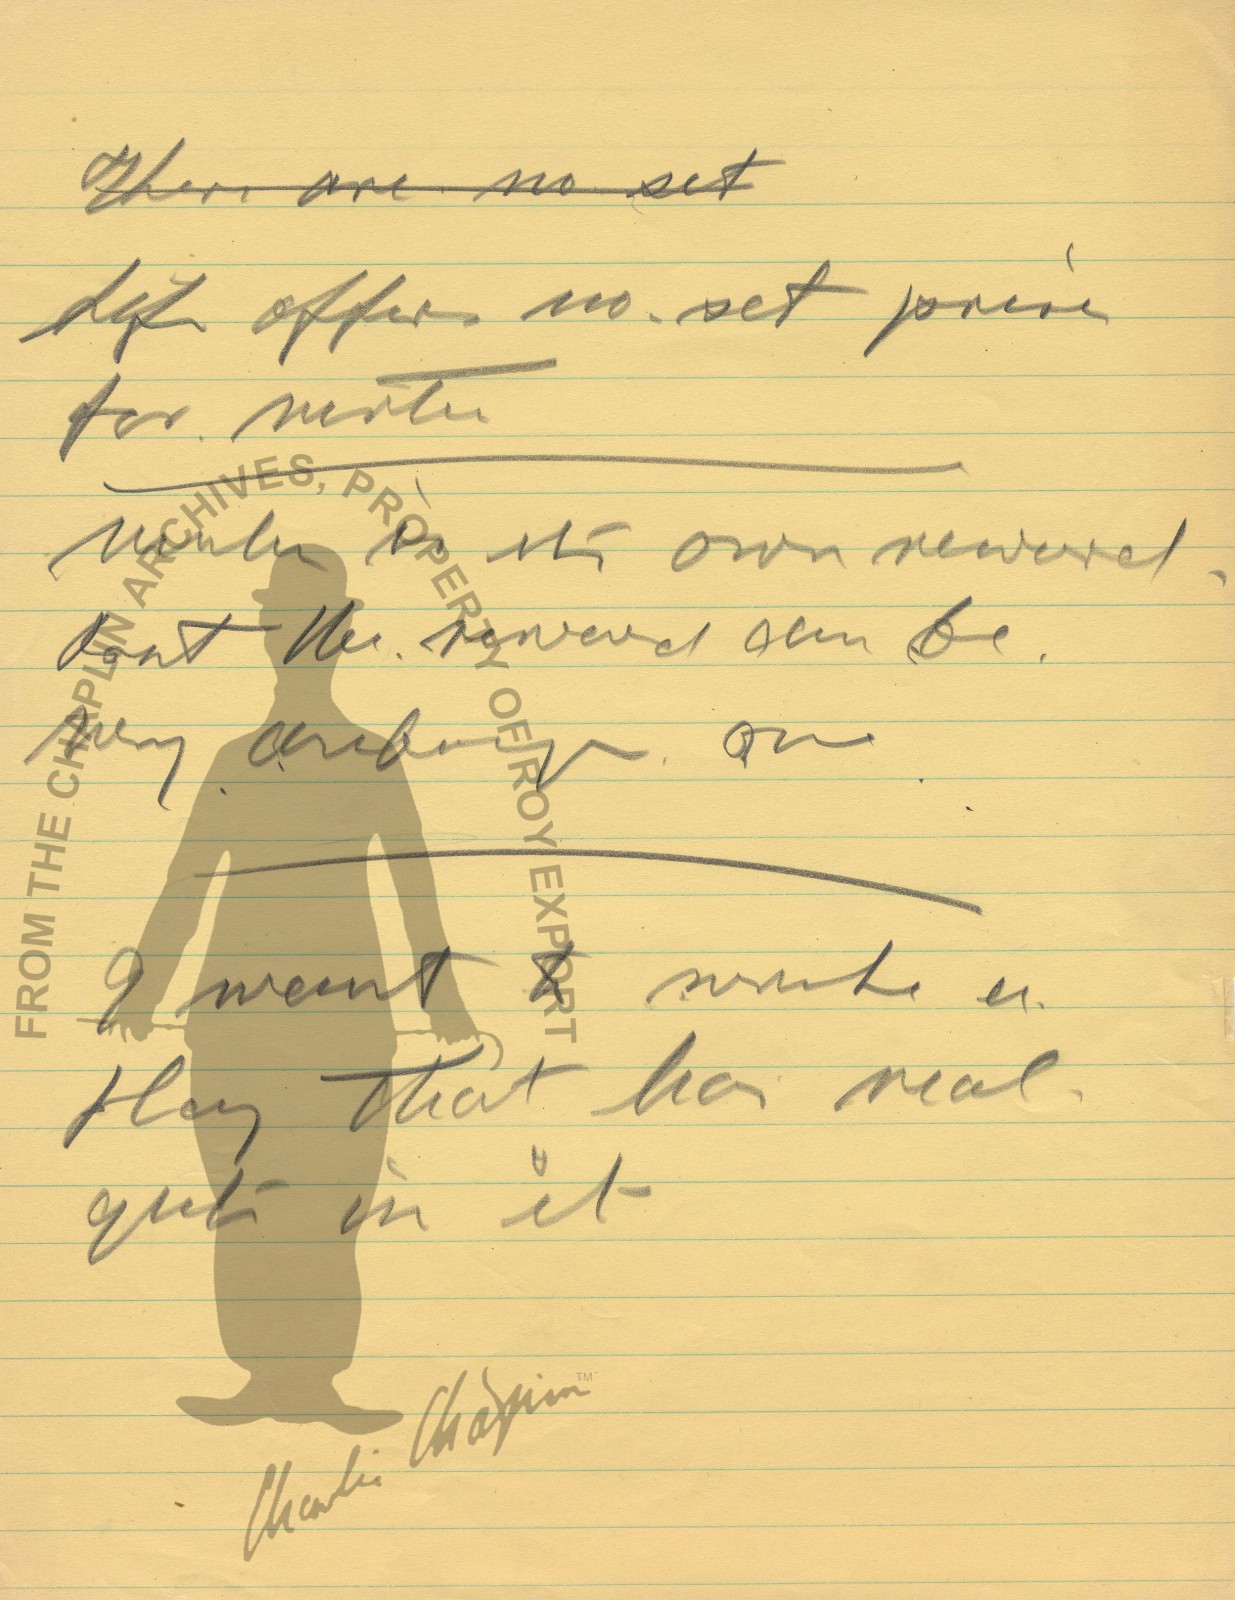 There are no set
Life offers no set price
for virtue
Virtue is its own reward.
But the reward can be
very
one
I want to write a
Play that has real
guts in it
FROM THE CHAPLIN ARCHIVES, PROPERTY OF ROY EXPORT
Charlie Chaplin™